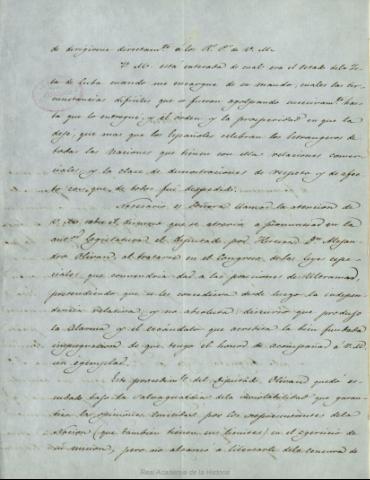 de dirigirme directam.te á los R.s P.s de V. M.
V. M. está enterada de cual era el estado de la Ys-
la de Cuba cuando me encargué de su mando, cuales las cir-
cunstancias dificiles que se fueron agolpando sucesivam.te has-
ta que lo entregué, y el órden y la prosperidad en que la
dejé, que mas que los Españoles celebran los Estrangeros de
todas las Naciones que tienen con ella relaciones comer-
ciales; y la clase de demostraciones de respeto y de afec-
to con que de todos fuí despedido.
Necesario es Señora llamar la atencion de
V. M. sobre el discurso que se atrevió a pronunciar en la
Legislatura el Diputado por Huesca D.n Alejan-
dro Olivan, al tratarse en el Congreso de las Leyes espe-
ciales que convendria dar á las posesiones de Ultramar,
pretendiendo que se les concediera desde luego la indepen-
dencia relativa, y no absoluta; discurso que produjo
la alarma y el escándalo que acredita la bien fundada
impugnacion de que tengo el honor de acompañar á V. M.
un egemplar.
Este procedim.to del Diputado Olivan quedó es-
cudado bajo la salvaguardia de la inviolabilidad que garan-
tiza las opiniones emitidas por los representantes de la
Nacion (que tambien tienen sus límites) en el egercicio de
su mision, pero no alcanza á libertarle de la censura de
Real Academia de la Historia